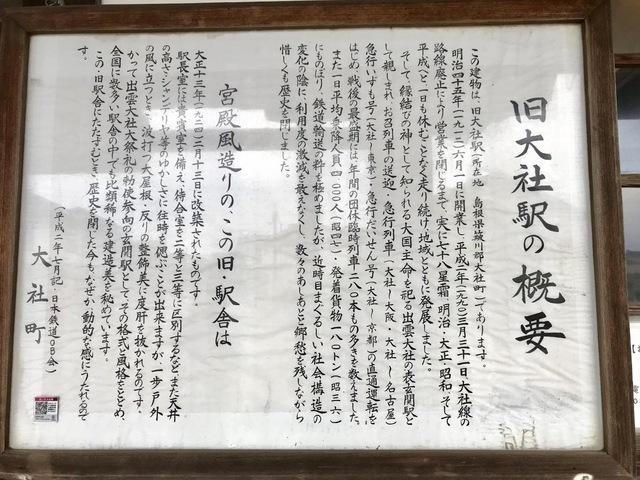 旧大社駅の概要
この建物は、旧大社駅(所在地 島根県簸川郡大社町)であります。
明治四十五年(一九一二)六月一日に開業し、平成二年(一九九〇)三月三十一日大社線の
路線廃止により営業を閉じるまで、実に七十八星霜、明治・大正・昭和そして
平成へと一日も休むことなく走り続け、地域とともに発展しました。
そして、縁結びの神として知られる大国主命を祀る出雲大社の表玄関駅と
して親しまれ、お召列車の送迎、急行列車(大社〜大阪・大社〜名古屋)
急行いずも号(大社〜東京)・急行だいせん号(大社〜京都)の直通運転を
はじめ、戦後の最盛期には、年間の団体臨時列車二八〇本もの多きを数えました。
また一日平均乗降人員四、〇〇〇人(昭四七)・発着貨物一八〇トン(昭三六)
にものぼり、鉄道輸送の粋を極めましたが、近時目まぐるしい社会構造の
変化の陰に、利用度の激減を数えなくし、数々のあしあとと郷愁を残しながら
惜しくも歴史を閉じました。
宮殿風造りの、この旧・駅舎は
大正十三年(一九二四)二月十三日に改築されたものです。
駅長室には貴賓室を備え、待合室を二等と三等に区別するなど、また天井
の高さ、シャンデリヤ等のゆかしさに往時を偲ぶことが出来ますが、一歩戸外
の風に立つとき、波打つ大屋根、反りの整飾美に度肝を抜かれるのです。
かつて出雲大社大祭礼の勅使参向の玄関駅として、その格式と風格をとどめ、
全国に数多い駅舎の中でも比類稀なる建造美を秘めています。
この・旧駅舎にたたずむとき、歴史を閉じた今も、なぜか動的な感にうたれるので
す。
(平成二年七月記・日本鉄道OB会)
大社町